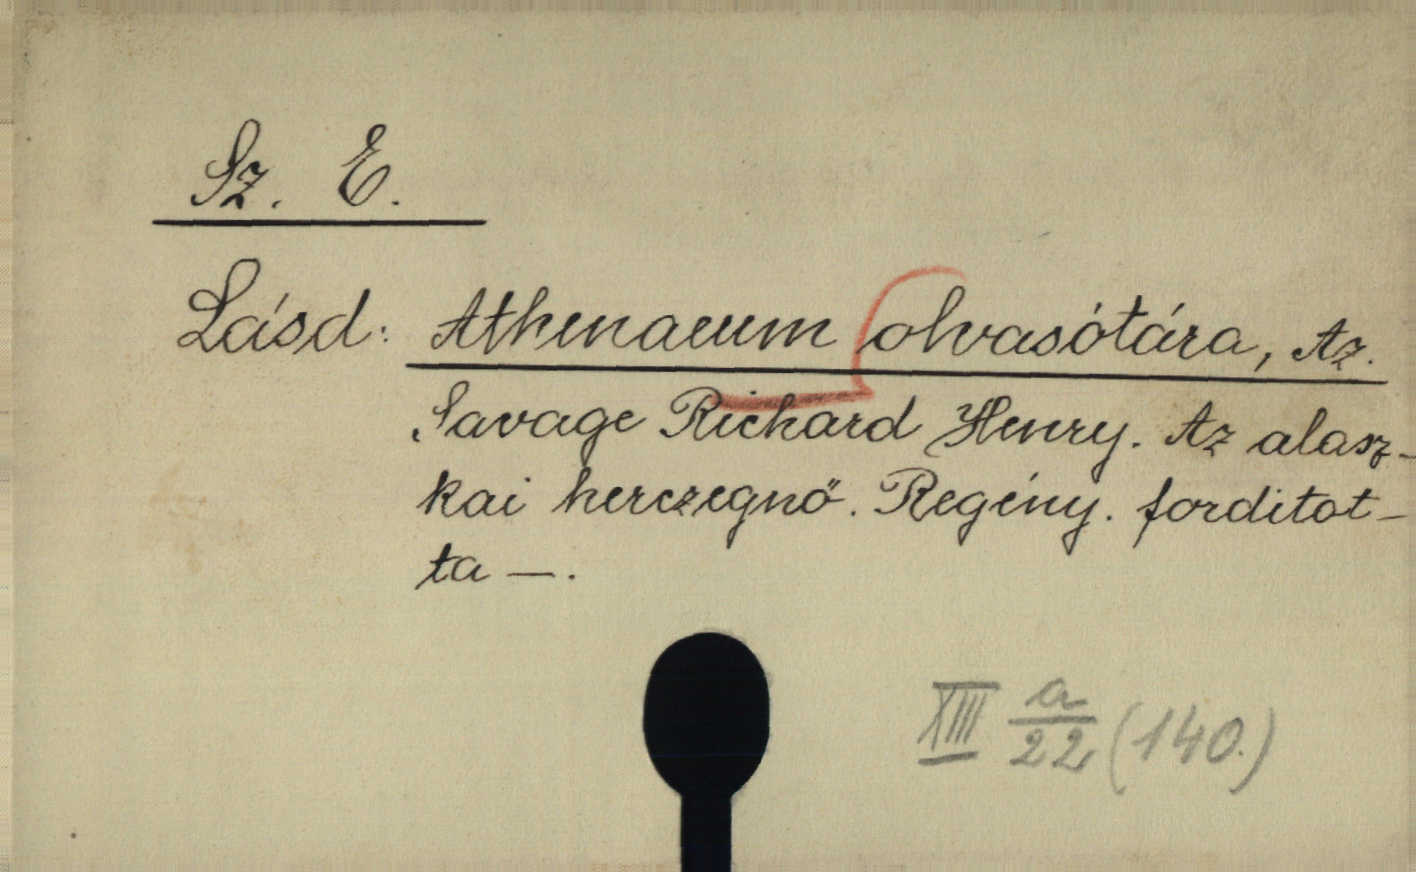 Sz. E.
Lásd: Athenaeum olvasótára, Az.
Savage Richard Henry. Az alasz-
kai herczegnő. Regény. forditot-
ta —.
XIII a/22 (140.)